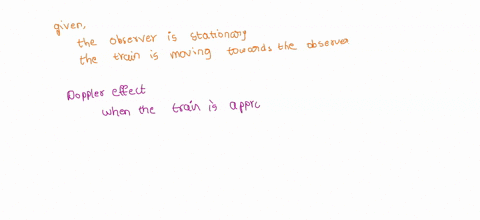 given,
the observer is stationary
the train is moving towards the observer
Doppler effect
when the train is appro